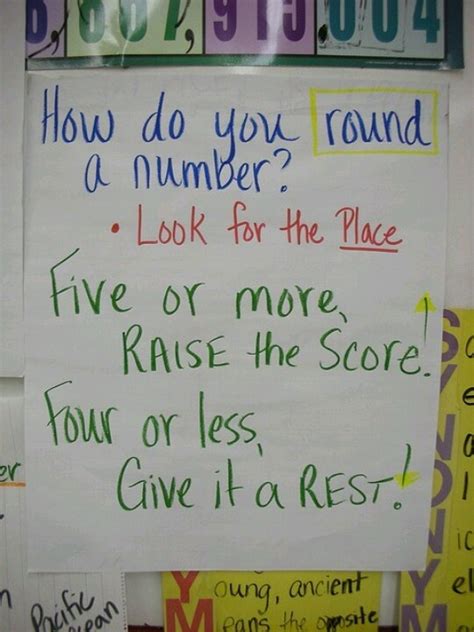 How do you round
a number?
• Look for the Place
Five or more,
RAISE the Score!
Four or less,
Give it a REST!
Pacific
oung, ancient
eans the opposite